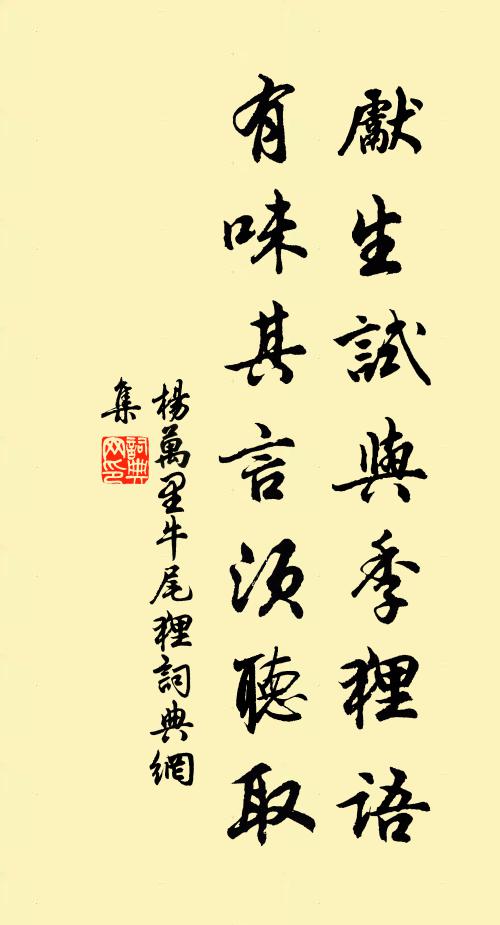 獻生試與季貍語
有味其言須聽取
楊萬里牛尾貍詞典網
集
詞典
网印